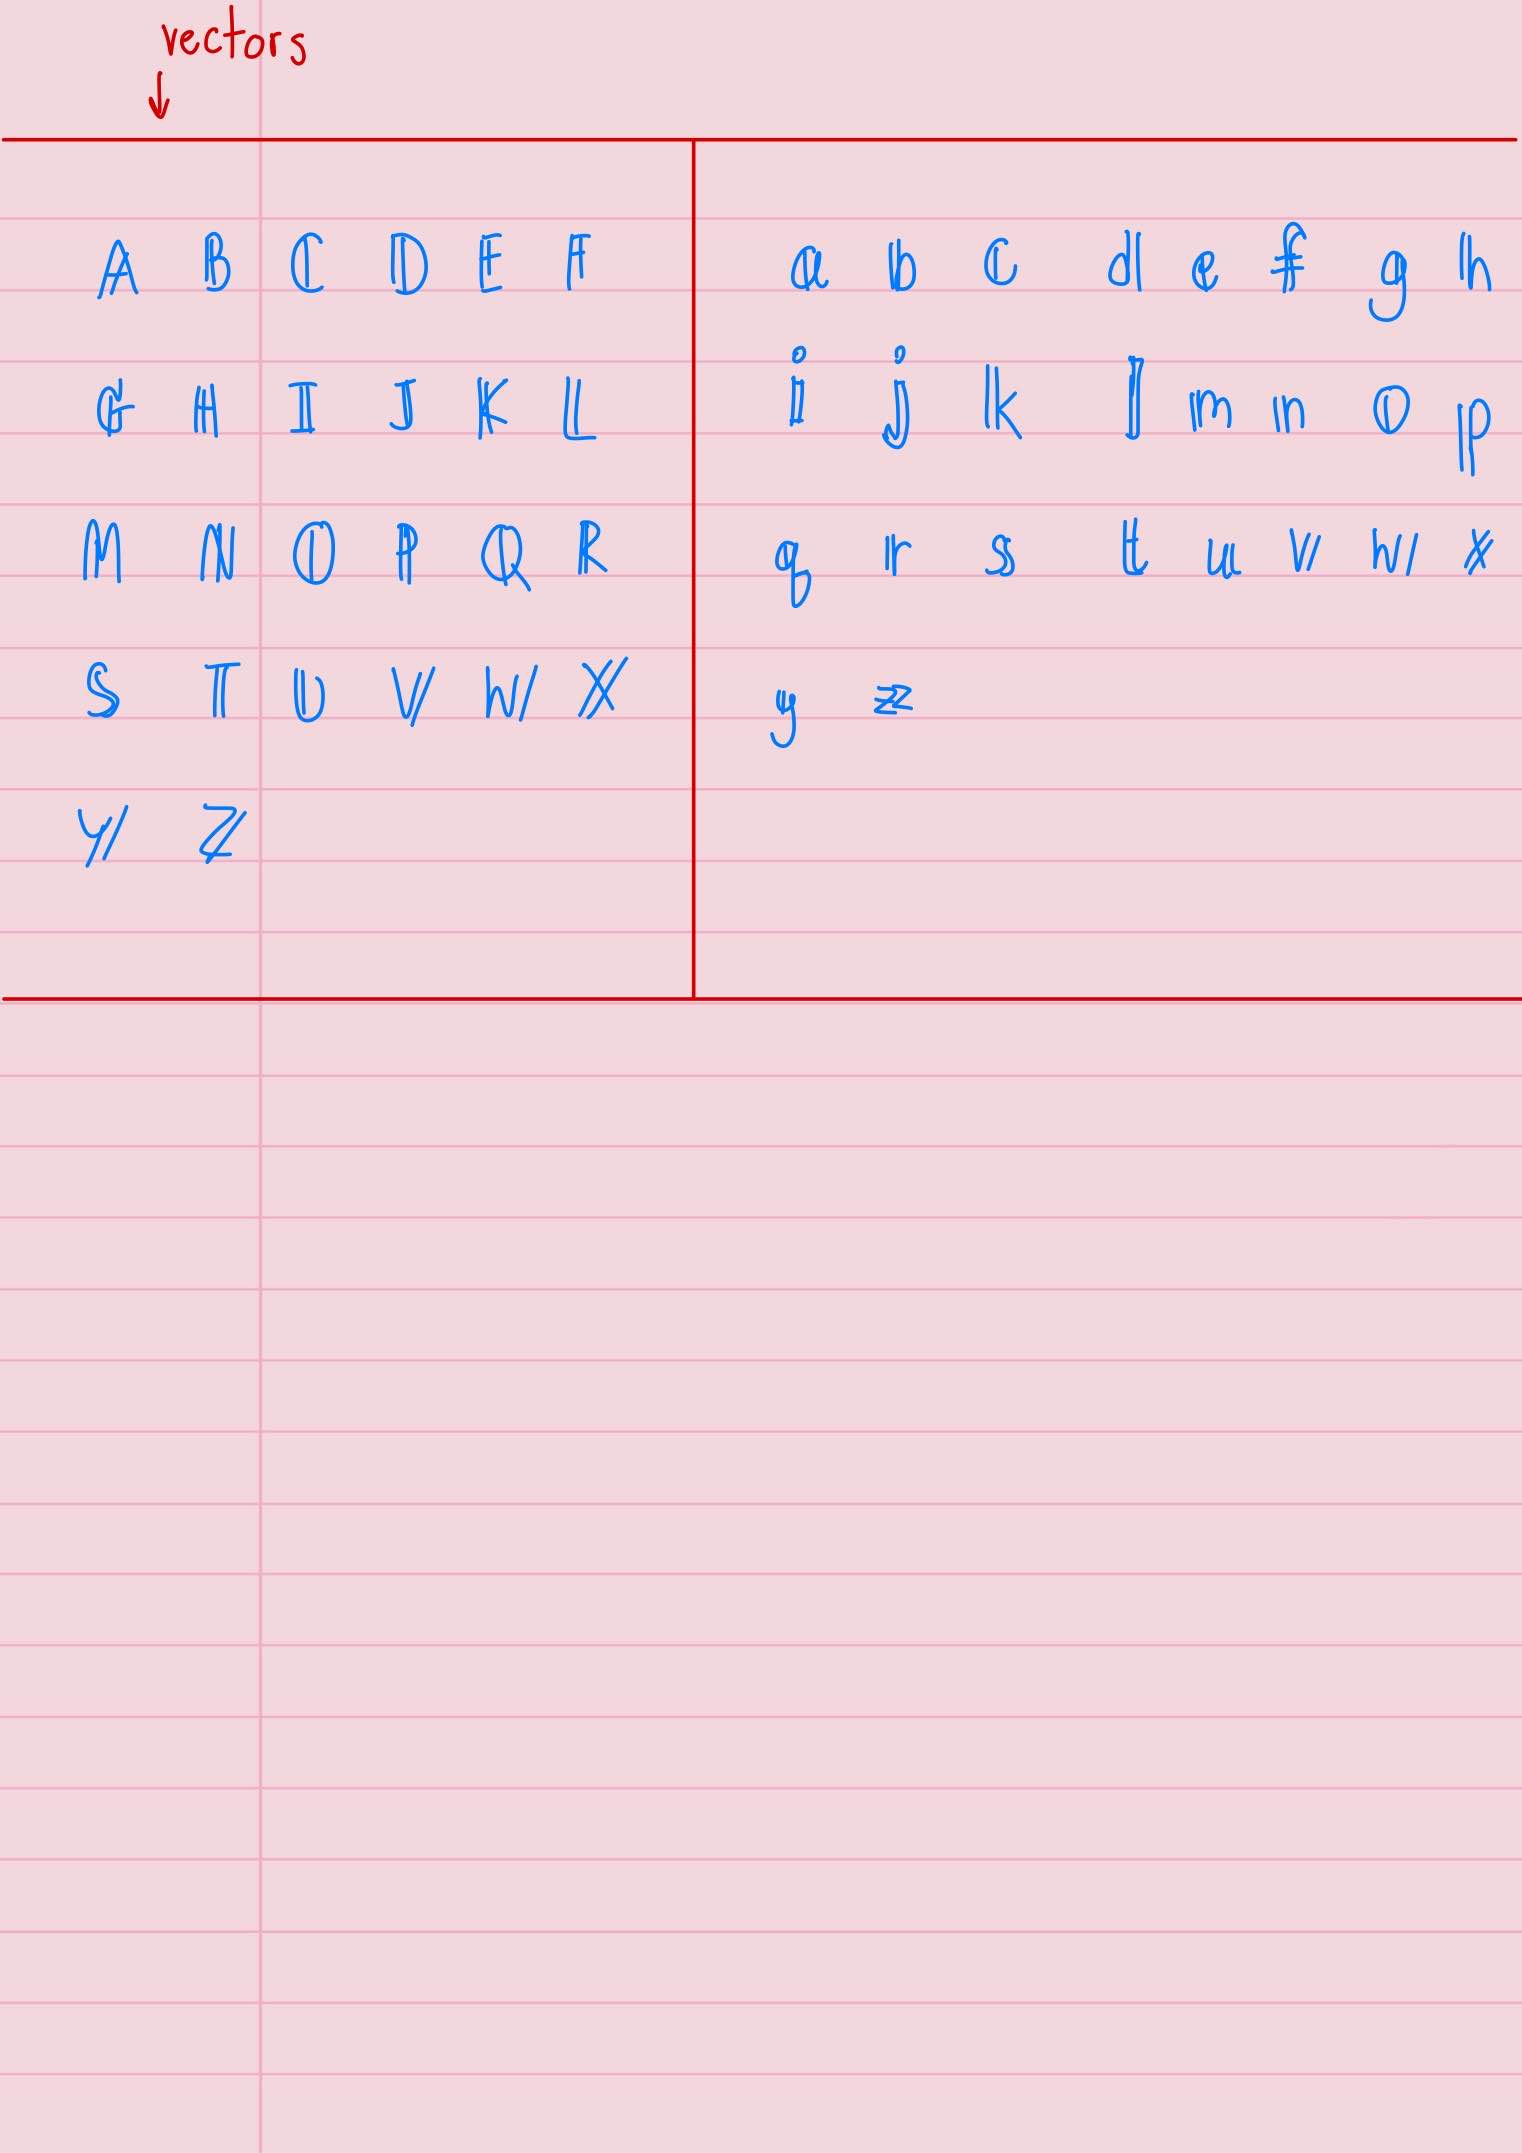 vectors
↓
𝔸 𝔹 ℂ 𝔻 𝔼 𝔽
𝔾 ℍ 𝕀 𝕁 𝕂 𝕃
𝕄 ℕ 𝕆 ℙ ℚ ℝ
𝕊 𝕋 𝕌 𝕍 𝕎 𝕏
𝕐 ℤ
𝕒 𝕓 𝕔 𝕕 𝕖 𝕗 𝕘 𝕙
𝕚 𝕛 𝕜 𝕝 𝕞 𝕟 𝕠 𝕡
𝕢 𝕣 𝕤 𝕥 𝕦 𝕧 𝕨 𝕩
𝕪 𝕫